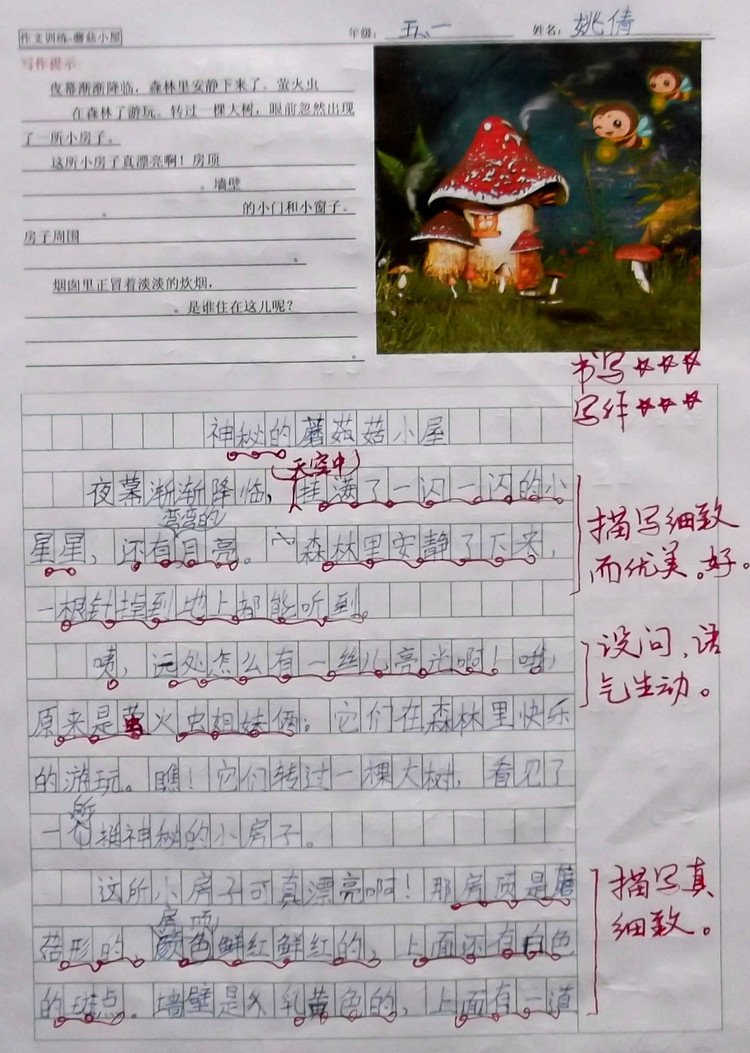 作文训练-蘑菇小屋 年级：五、一 姓名：姚倩
写作提示
夜幕渐渐降临，森林里安静下来了。萤火虫
在森林了游玩。转过一棵大树，眼前忽然出现
了一所小房子。
这所小房子真漂亮啊！房顶
。墙壁
。的小门和小窗子。
房子周围
。
烟囱里正冒着淡淡的炊烟，
。是谁住在这儿呢？
。
书写☆☆☆
写作☆☆☆
神秘的蘑菇菇小屋
（天空中）
夜幕渐渐降临，挂满了一闪一闪的小
弯弯的
星星，还有月亮。森林里安静了下来，
一根针掉到地上都能听到。
描写细致
而优美。好。
咦，远处怎么有一丝儿亮光啊！嗯，
原来是萤火虫姐妹俩，它们在森林里快乐
的游玩。瞧！它们转过一棵大树，看见了
设问，语
气生动。
所
一神秘的小房子。
这所小房子可真漂亮啊！那房顶是蘑
房顶
菇形的，颜色鲜红鲜红的，上面还有白色
的斑点。墙壁是乳黄色的，上面有一道
描写真
细致。